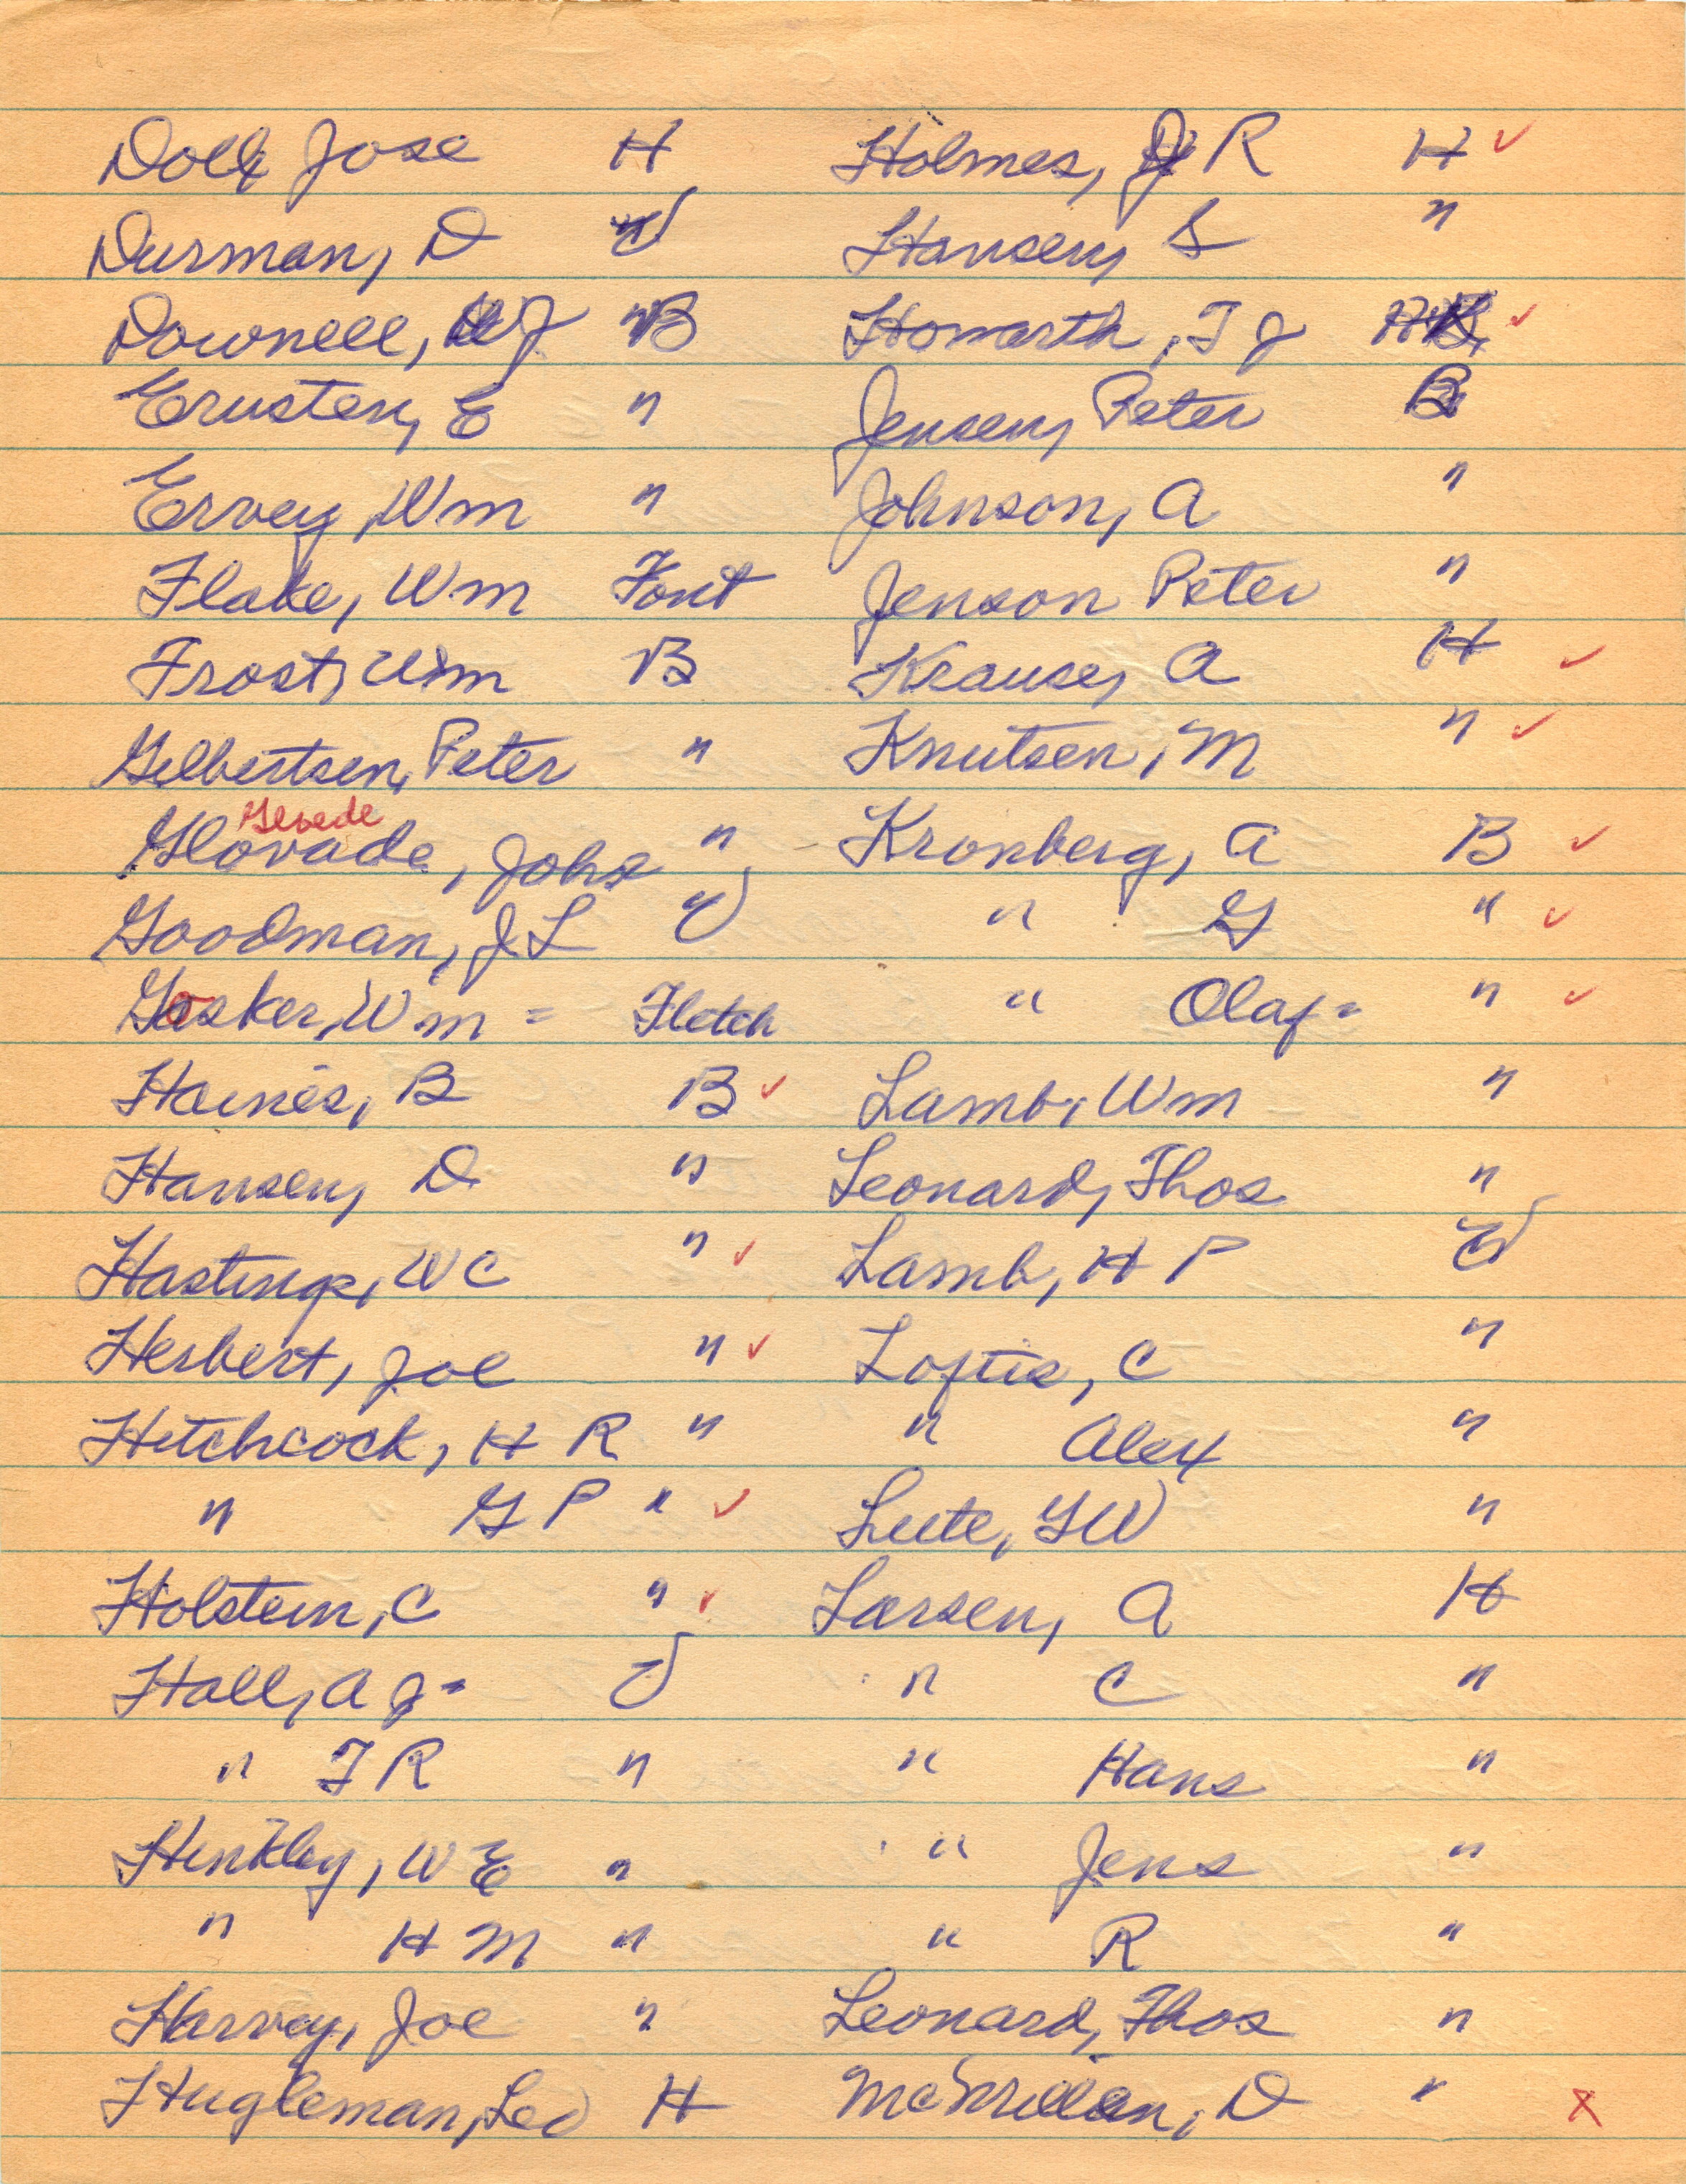 Doll, Jose H
Durman, D
Downell, W J B
Ernsten, E "
Ervey, Wm "
Flake, Wm Font
Frost, Wm B
Gilbertsen, Peter "
Glevede
Glovade, John "
Goodman, J L
Gasker, Wm = Fletch
Haines, B B ✓
Hansen, D "
Hastings, W C " ✓
Herbert, Joe " ✓
Hitchcock, H R "
" G P " ✓
Holstein, C " ✓
Hall, A J =
" F R "
Hinkley, W E "
" H M "
Harvey, Joe "
Hugleman, Leo H
Holmes, J R H ✓
Hansen, S "
Howarth, T J ✓
Jensen, Peter B
Johnson, A "
Jenson Peter "
Krause, A H ✓
Knutsen, M " ✓
Kronberg, A B ✓
" G " ✓
" Olaf = " ✓
Lamb, Wm "
Leonard, Thos "
Lamb, H P
Loftis, C "
" Alex "
Lute, G W "
Larsen, A H
" C "
" Hans "
" Jens "
" R "
Leonard, Thos "
McMillan, D " X